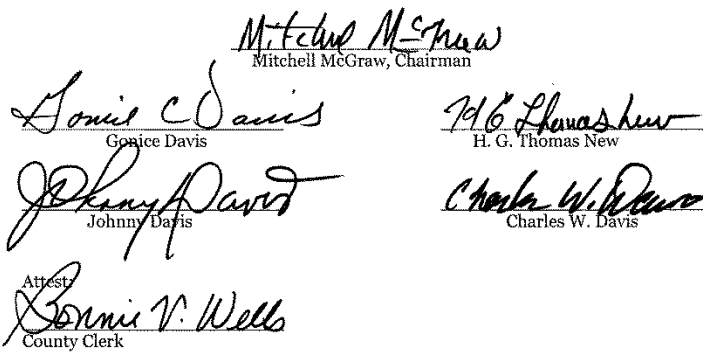 Mitchel McGraw
Mitchell McGraw, Chairman
Gonice C Davis
Gonice Davis
H G Thomas New
H. G. Thomas New
Johnny Davis
Johnny Davis
Charles W. Davis
Charles W. Davis
Attest:
Bonnie V. Wells
County Clerk